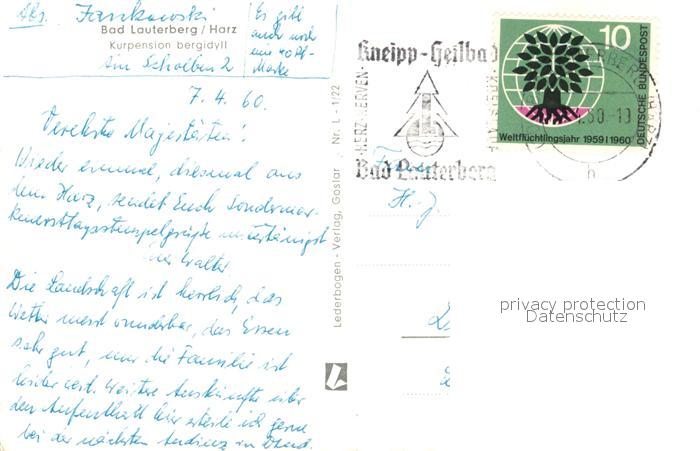 Abs. Jankowski
Bad Lauterberg / Harz
Kurpension bergidyll
Am Scholben 2
Es gibt
auch noch
eine 40 Pf-
Marke
7.4.60.
Verehrte Majestäten!
Wieder einmal, diesmal aus
dem Harz, sendet Euch Sondermar-
kenersttagsstempelgrüße untertänigst
Walter.
Die Landschaft ist herrlich, das
Wetter meist wunderbar, das Essen
sehr gut, nur die Familie ist
leider weit. Weitere Auskünfte über
den Aufenthalt hier erteile ich gerne
bei der nächsten Audienz in
Lederbogen - Verlag, Goslar Nr. L - 1/22
Kneipp-Heilbad
HERZ NERVEN
KREISLAUF
Bad Lauterberg
10
DEUTSCHE BUNDESPOST
Weltflüchtlingsjahr 1959|1960
60-10
h
H. J.
privacy protection
Datenschutz